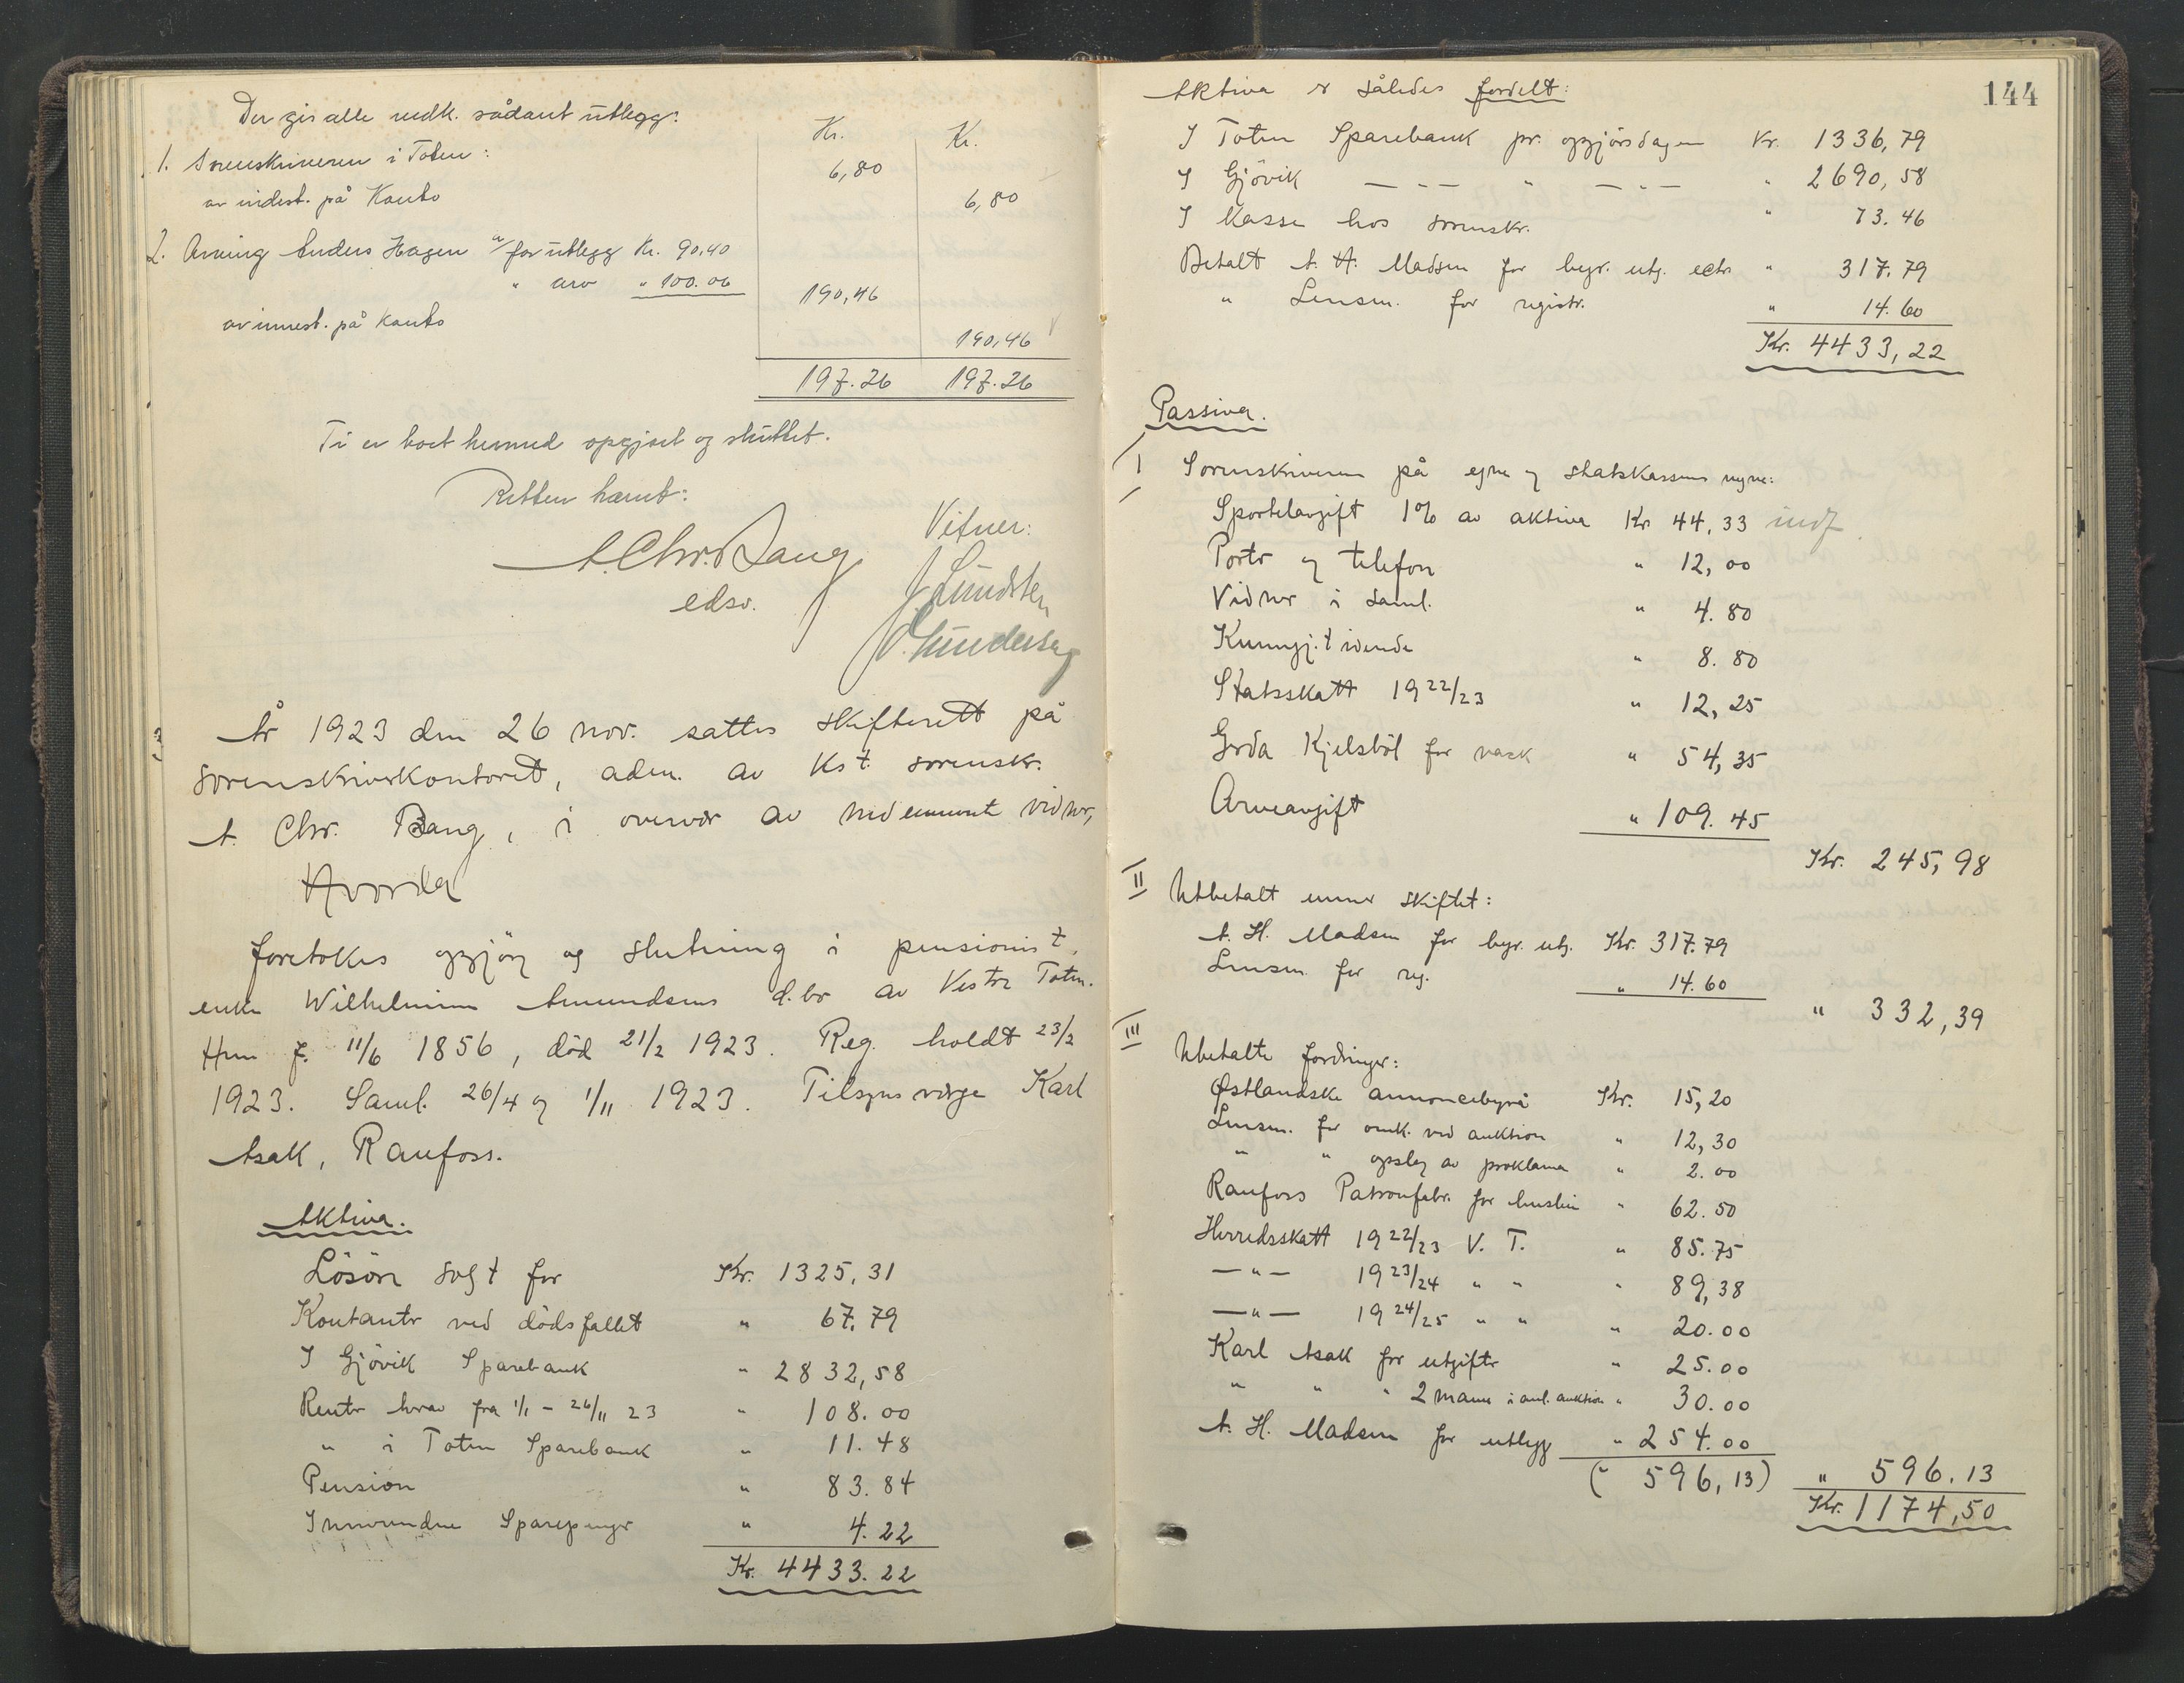 Der gis alle vedk. sådant utlegg:
Kr. Kr.
1. Sorenskriveren i Toten: 6,80
av indest. på Konto 6,80
2. Arving Anders Hagen a/ for utlegg Kr. 90,40
" arv " 100.06 190,46
av innest. på Konto 190,46
197.26 197.26
Ti er boet hermed opgjort og sluttet.
Retten hævet:
A. Chr. Bang
edsv.
Vitner:
J. Lundsten
År 1923 den 26 nov. sattes skifterett på
sorenskriverkontoret, adm. av kst. sorenskr.
A. Chr. Bang, i overvær av nedennevnte vidner,
Hvorda
foretokes opgjör og slutning i pensionist,
enke Wilhelmine Amundsens d.bo av Vestre Toten.
Hun f. 11/6 1856, död 21/2 1923. Reg. holdt 23/2
1923. Saml. 26/4 og 1/11 1923. Tilsynsverge Karl
Asak, Raufoss.
Aktiva.
Lösöre solgt for Kr. 1325,31
Kontanter ved dödsfallet " 67.79
I Gjövik Sparebank " 2832,58
Renter herav fra 1/1 - 26/11 23 " 108.00
" i Toten Sparebank " 11.48
Pension " 83.84
Innvundne Sparepenger " 4.22
Kr. 4433.22
144
Aktiva er således fordelt:
I Toten Sparebank pr. opgjörsdagen Kr. 1336,79
I Gjövik — " — " — " — " 2690,58
I Kasse hos sorenskr. " 73.46
Betalt A. H. Madsen for begr. utg. ectr. " 317.79
" Lensm. for registr. " 14.60
Kr. 4433,22
Passiva.
I Sorenskriveren på egne og statskassens vegne:
Sportelavgift 1% av aktiva Kr 44,33 indf
Porto og telefon " 12,00
Vidner i saml. " 4.80
Kunngj.tidende " 8.80
Statsskatt 1922/23 " 12,25
Gerda Kjelsböl for vask " 54,35
Arveavgift " 109.45
Kr. 245,98
II Utbetalt under skiftet:
A. H. Madsen for begr. utg. Kr. 317.79
Lensm. for reg. " 14.60
" 332,39
III Ubetalte fordringer:
Östlandske annoncebyrå Kr. 15,20
Lensm. for omk. ved auktion " 12,30
" " opslag av proklama " 2.00
Raufoss Patronfabr. for husleie " 62.50
Herredsskatt 1922/23 V. T. " 85.75
— " — 1923/24 " " " 89,38
— " — 1924/25 " " " 20.00
Karl Asak for utgifter " 25.00
" " " 2 mann i anl. auktion " 30.00
A. H. Madsen for utlegg " 254.00
(" 596,13) " 596.13
Kr. 1174,50